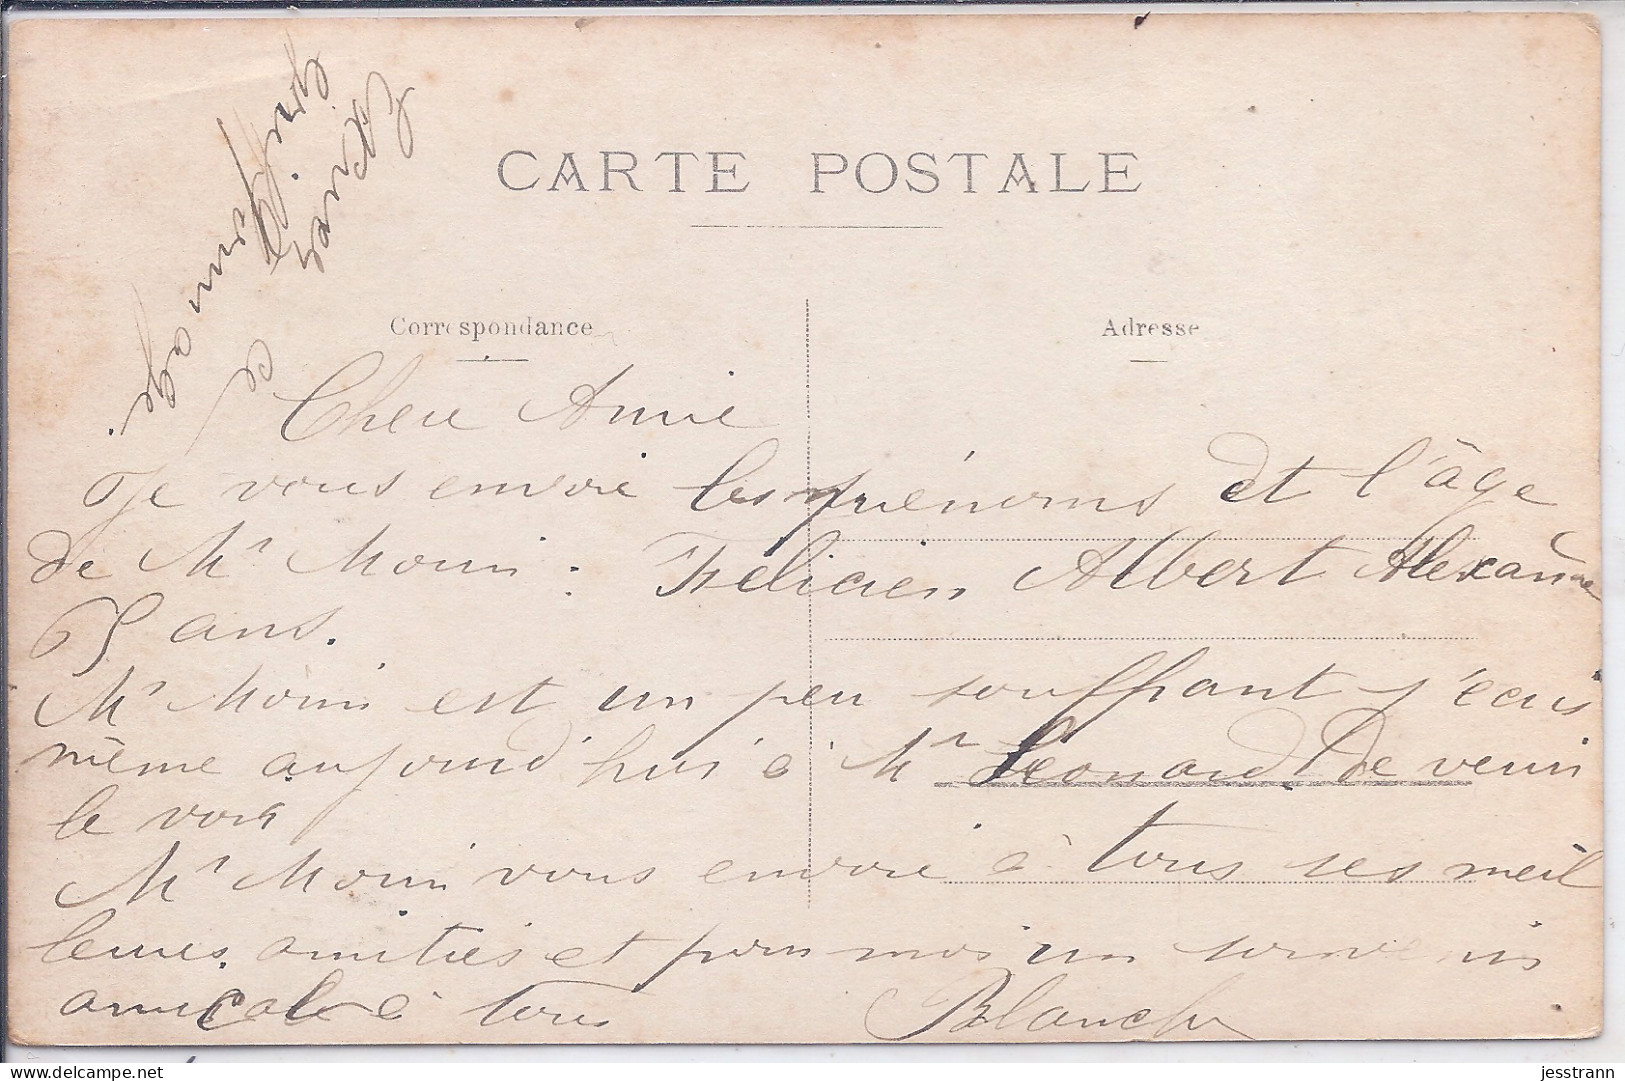 CARTE POSTALE
Correspondance
Adresse
Chere Amie
Je vous envoie les prénoms et l'âge
de Mr Morin : Félicien Albert Alexandre
65 ans.
Mr Morin est un peu souffrant j'écris
même aujourd'hui à Mr Léonard de venir
le voir
Mr Morin vous envoie à tous ses meil
leures amitiés et pour moi un souvenir
amical à tous Blanche
delcampe.net
jesstrann